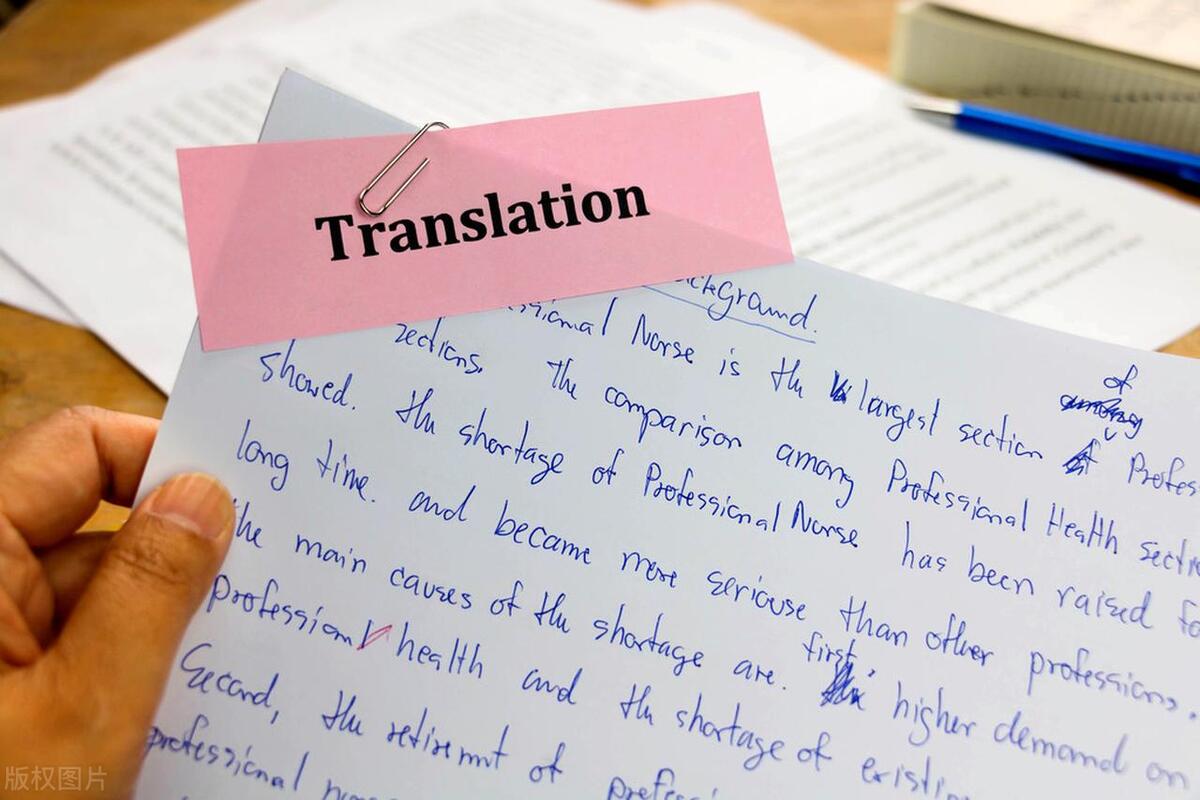 Translation
ckground.
ssional Nurse is the largest section of Profes
sections. The comparison among Professional Health secti
showed. the shortage of Professional Nurse has been raised fo
long time. and became more seriouse than other professions.
the main causes of the shortage are. first, higher demand on
professional health and the shortage of existin
Second, the retiremnt of profess
professional
版权图片